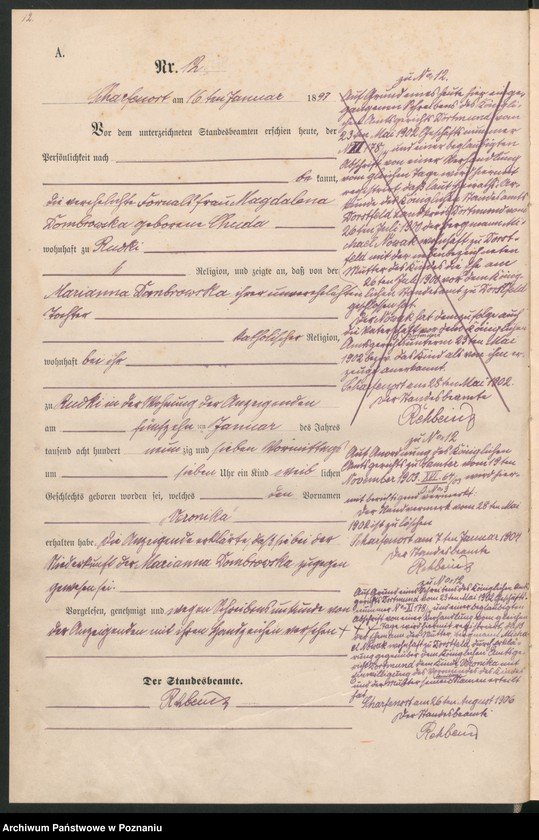 12.
A.
Nr. 12.
Scharfenort am 16ten Januar 1897
Vor dem unterzeichneten Standesbeamten erschien heute, der
Persönlichkeit nach
be kannt,
die verehelichte Fornalsfrau Magdalena
Dombrowska geborene
wohnhaft zu Rudki
Religion, und zeigte an, daß von der
Marianna Dombrowska ihrer unverehelichten
Tochter
katholischer Religion,
wohnhaft bei ihr
zu Rudki in der Wohnung der Anzeigenden
am fünfzehnten Januar des Jahres
tausend acht hundert neunzig und sieben Vormittags
um sieben Uhr ein Kind weiblichen
Geschlechts geboren worden sei, welches den Vornamen
Veronika
erhalten habe. Die Anzeigende erklärte, daß sie bei der
Niederkunft der Marianna Dombrowska zugegen
gewesen sei.
Vorgelesen, genehmigt und wegen Schreibensunkunde von
der Anzeigenden mit ihren Handzeichen versehen +
Der Standesbeamte.
Rehbein
zu No 12.
Auf Grund eines heute hier einge-
gangenen Schreibens des Königli-
chen Amtsgerichts Dortmund vom
23ten Mai 1902 Geschäftsnummer
178, und einer beglaubigten
Abschrift von einer Verhandlung
vom gleichen Tage wird hiermit
registriert, daß laut Heirats-Ur-
kunde des Königlichen Standesamts
Dorstfeld Landkreis Dortmund vom
26ten Juli 1901 der Bergmann Mi-
chael Nowak wohnhaft zu Dorst-
feld mit der nebenbezeichneten
Mutter des Kindes die Ehe am
26ten Juli 1901 vor dem König-
lichen Standesamt zu Dorstfeld
geschlossen hat.
Der Nowak hat demzufolge auch
die Vaterschaft vor dem Königlichen
Amtsgericht Dortmund unterm 23ten Mai
1902 das Kind als von ihm er-
zeugt anerkannt.
Scharfenort am 28ten Mai 1902.
Der Standesbeamte
Rehbein
zu No 12
Auf Anordnung des Königlichen
Amtsgerichts zu Samter vom 19ten
November 1903 wird hier-
mit berichtigend vermerkt.
Der Randvermerk vom 28ten Mai
1902 ist zu löschen
Scharfenort am 7ten Januar 1904
Der Standesbeamte
Rehbein
zu No 12
Auf Grund eines Schreibens des Königlichen Amts-
gerichts Dortmund vom 23ten Mai 1902 Geschäfts-
nummer 178, und einer beglaubigten
Abschrift von einer Verhandlung vom gleichen
Tage wird hiermit registriert, daß
der Ehemann der Mutter Bergmann Micha-
el Nowak wohnhaft zu Dorstfeld, durch Erklä-
rung gegenüber dem Königlichen Amtsge-
richt Dortmund dem Kinde Veronika mit
Einwilligung des Vormundes des Kindes
und der Mutter seinen Namen erteilt
hat
Scharfenort am 26ten August 1906
Der Standesbeamte
Rehbein
Archiwum Państwowe w Poznaniu